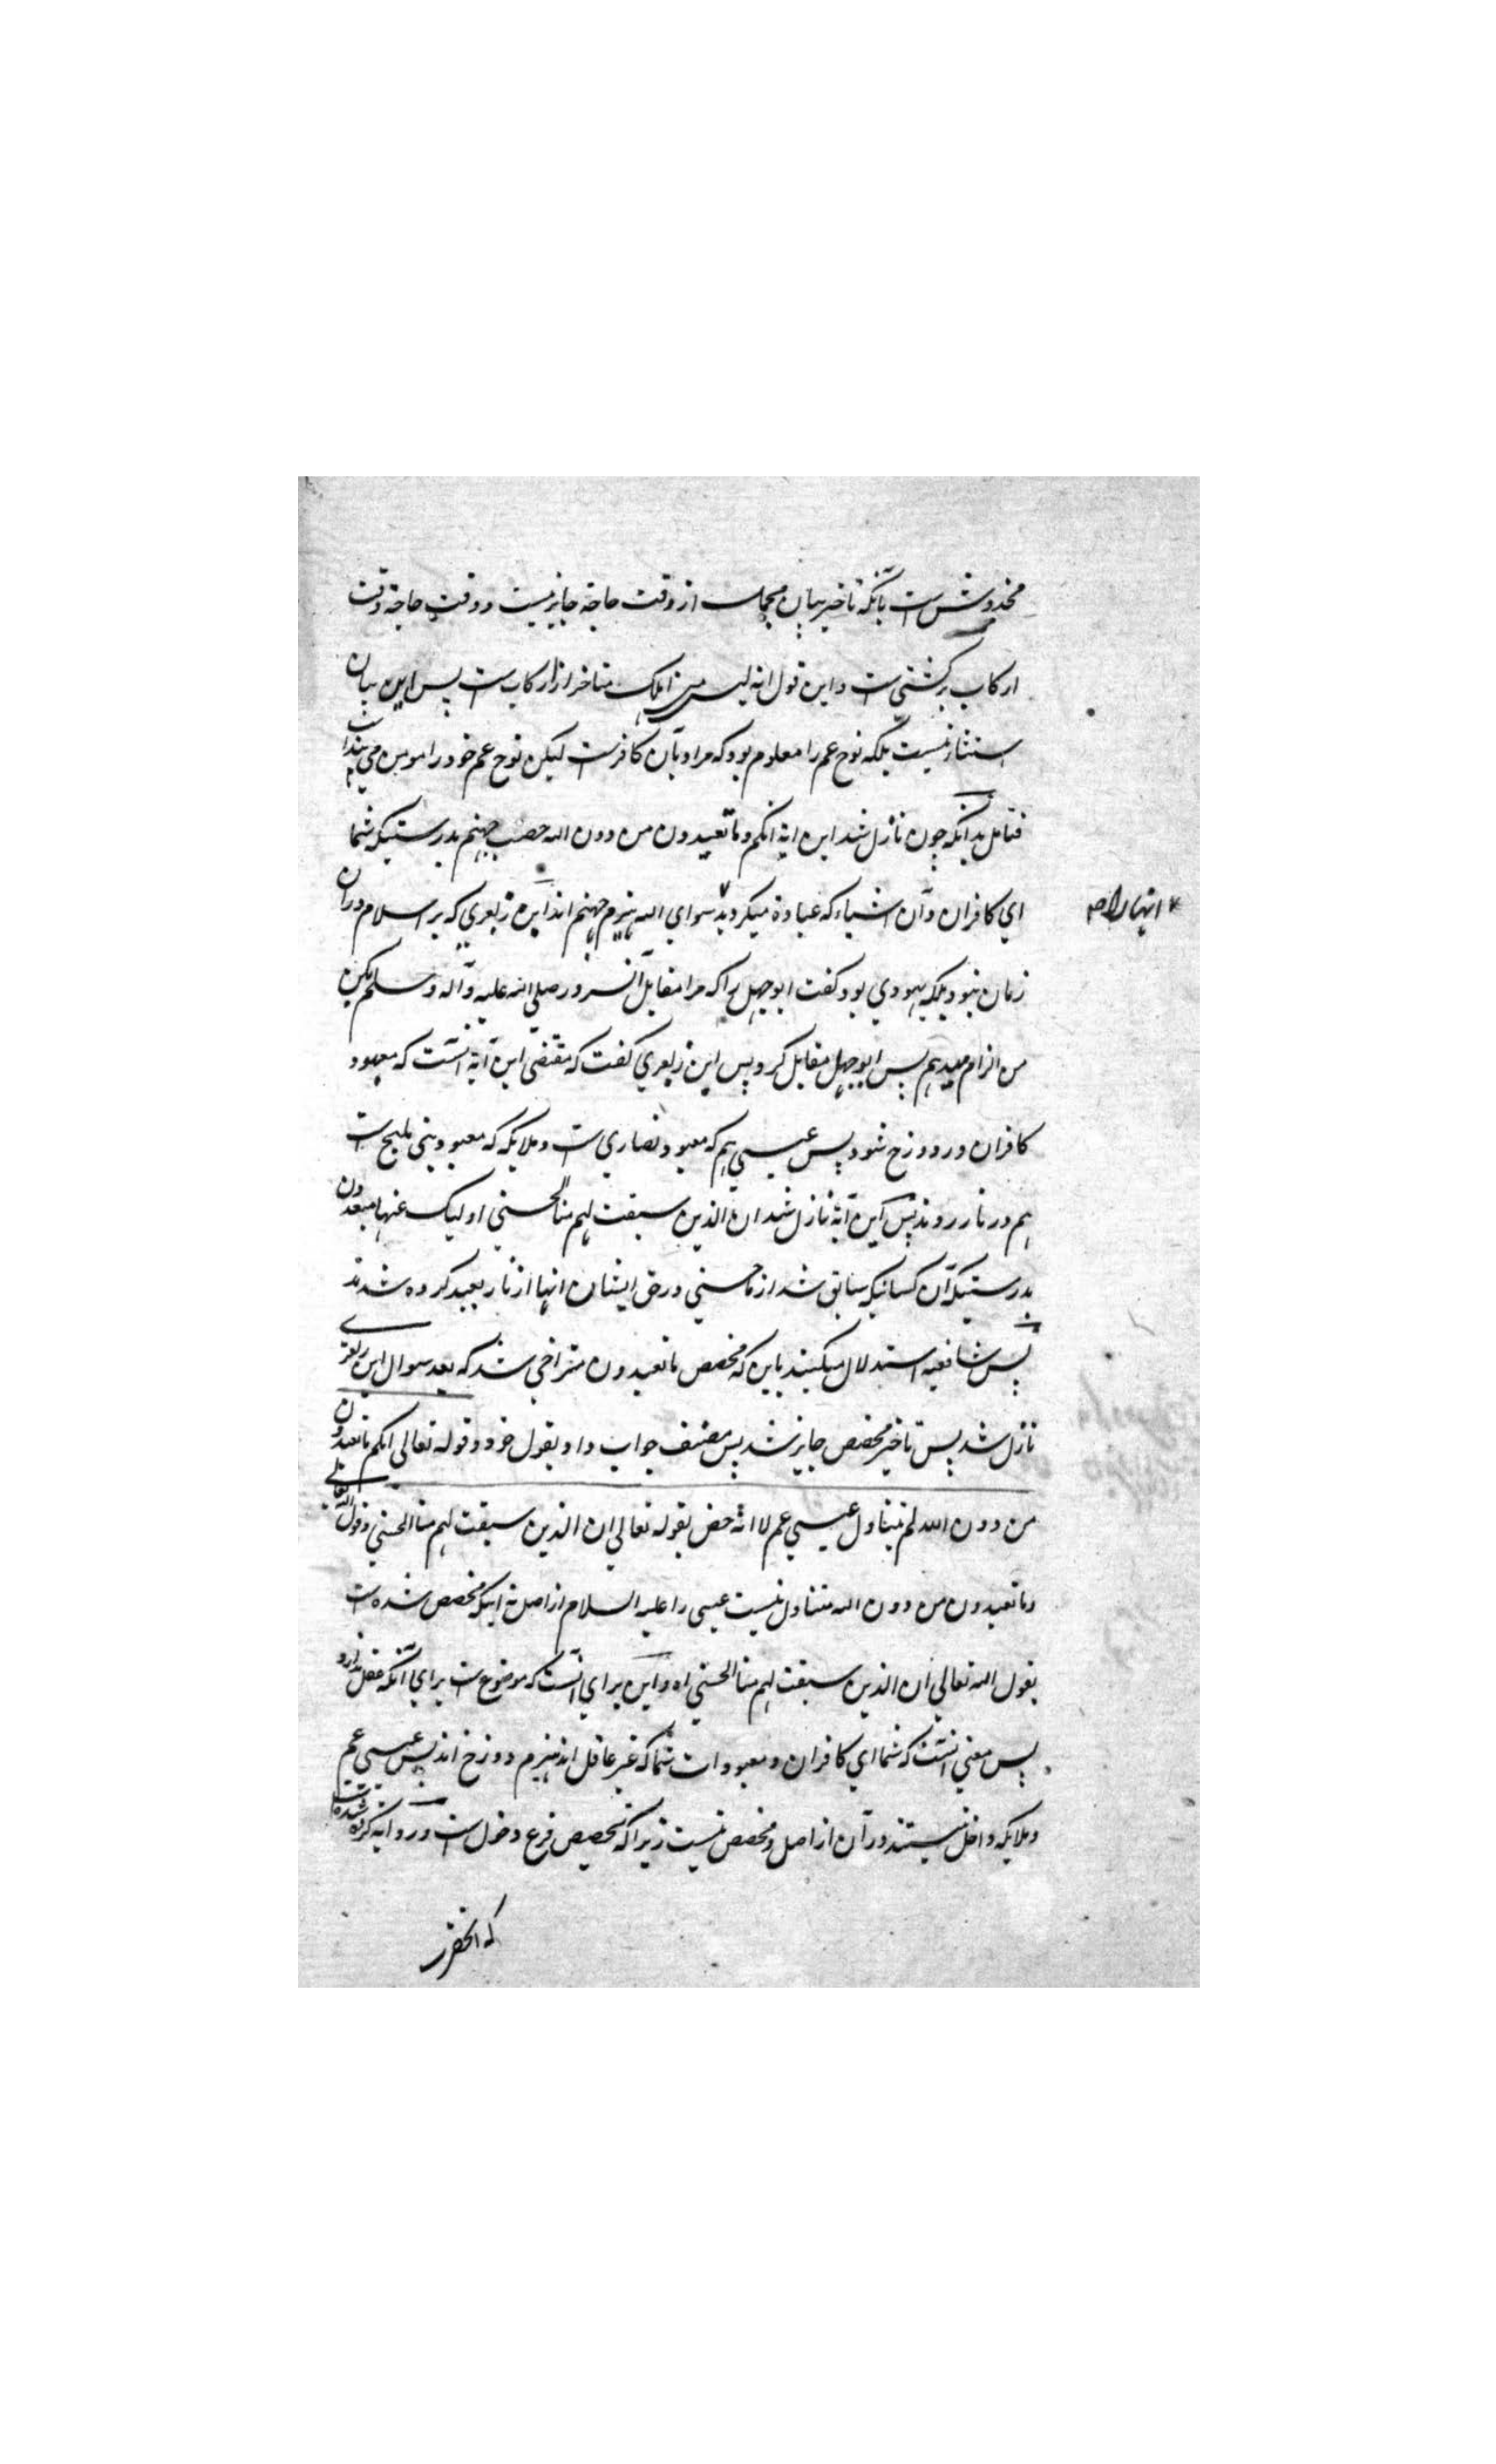 مخدوش ست بآنکه تاخیر بیان مجمل از وقت حاجة جایز نیست و وقت حاجة وقت
ارکاب بر کشتی ست و این قول انه لیس من اهلک متاخر از ارکاب ست پس این بیان
استثنا نیست بلکه نوح عم را معلوم بود که مراد بآن کافر ست لیکن نوح عم خود را مومن می پنداشت
فتامل بدانکه چون نازل شد این ایة انکم وما تعبدون من دون الله حصب جهنم بدرستیکه شما
ای کافران و آن اشیاء که عبادة میکردید سوای الله هیزم جهنم اند این زبعری که بر اسلام دران
انها را ۱۲
زمان نبود بلکه یهودی بود گفت ابو جهل را که مرا مقابل آنسرور صلی الله علیه وآله وسلم بکن
من الزام میدهم پس ابوجهل مقابل کرد پس ابن زبعری گفت که مقتضی این آیة آنست که معبود
کافران در دوزخ شود پس عیسی هم که معبود نصاری ست و ملایکه که معبود بنی ملیح ست
هم در نار روند پس این آیة نازل شد ان الذین سبقت لهم منا الحسنی اولیک عنها مبعدون
بدرستیکه آن کسانیکه سابق شد از ما حسنی در حق ایشان انها از نار بعید کرده شدند
پس شافعیه استدلال میکنند باین که مخصص ما تعبدون متراخی شد که بعد سوال ابن زبعری
نازل شد پس تاخیر مخصص جایز شد پس مصنف جواب داد بقول خود و قوله تعالی انکم وما تعبدون
من دون الله لم یتناول عیسی عم لا انه خص بقوله تعالی ان الذین سبقت لهم منا الحسنی وقول الله تعالی
وما تعبدون من دون الله متناول نیست عیسی را علیه السلام از اصل نه اینکه مخصص شده ست
بقول الله تعالی ان الذین سبقت لهم منا الحسنی اه و این برای آنست که ما موضوع ست برای آنکه عقل ندارد
پس معنی آنست که شما ای کافران و معبودات شما که غیر عاقل اند هیزم دوزخ اند پس عیسی عم
و ملایکه داخل نیستند در آن از اصل و مخصص نیست زیرا که تخصیص فرع دخول ست و روایة کرده شده ست
که آنحضرت